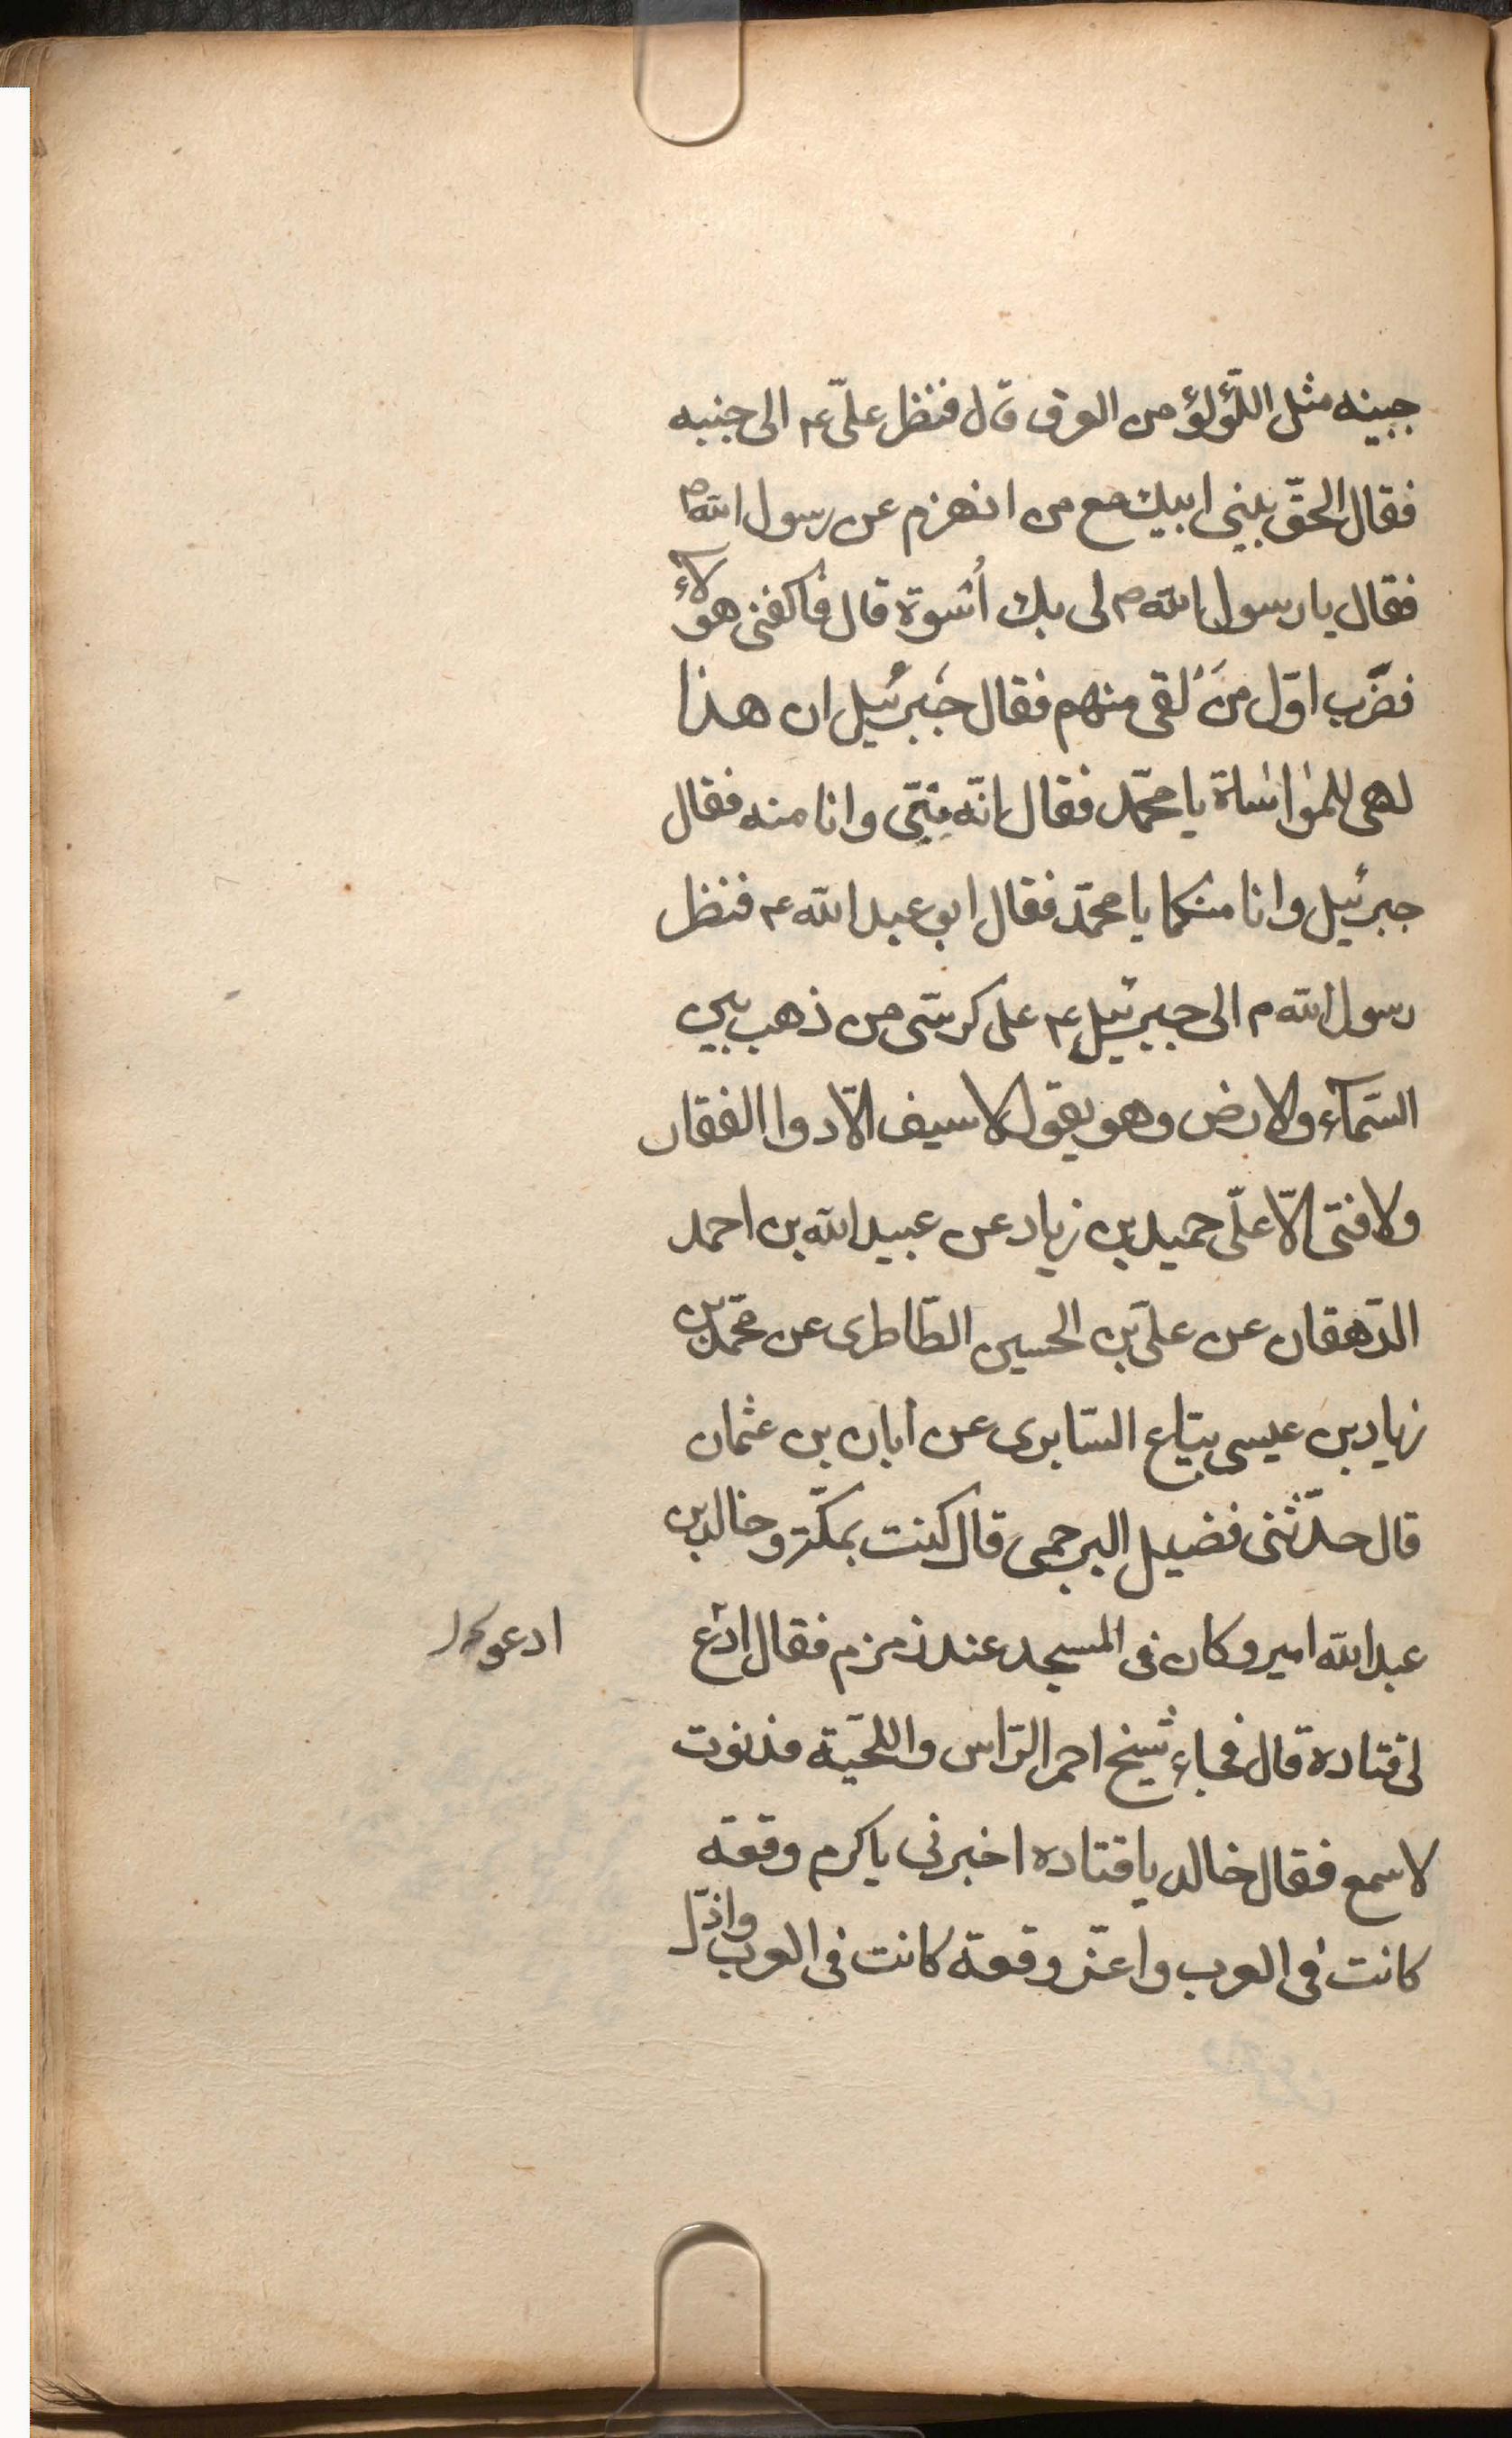 جبينه مثل اللّؤلؤ من العرق قال فنظر علىّ ع الى جنبه
فقال الحقّ ببنى ابيك مع من انهزم عن رسول الله ص
فقال يا رسول الله ص لى بك أسوة قال فاكفنى هولآء
فضرَب اوّل مَن لقى منهم فقال جَبرئيل ان هذا
لهى للمواساة يا محمّد فقال انّه منّى وانا منه فقال
جبرئيل وانا منكما يا محمّد فقال ابو عبد الله ع فنظر
رسول الله ص الى جبرئيل ع على كرسّى من ذهب بين
السّمآء والارض وهو يقول لا سيف الّا ذوا الفقار
ولا فتى الّا علّى حميد بن زياد عن عبيد الله بن احمد
الدّهقان عن علىّ بن الحسين الطّاطرى عن محمّد بن
زياد بن عيسى بيّاع السّابرى عن ابان بن عثمان
قال حدّثنى فضيل البرجمى قال كنت بمكّة وخالد بن
عبد الله امير وكان فى المسجد عند زمزم فقال ادع
ادعوا
لى قتاده قال فجاء شيخ احمر الرّاس واللّحية فدنوت
لاسمع فقال خالد يا قتاده اخبرنى باكرم وقعة
كانت فى العرب واعزّ وقعة كانت فى العرب واذلّ